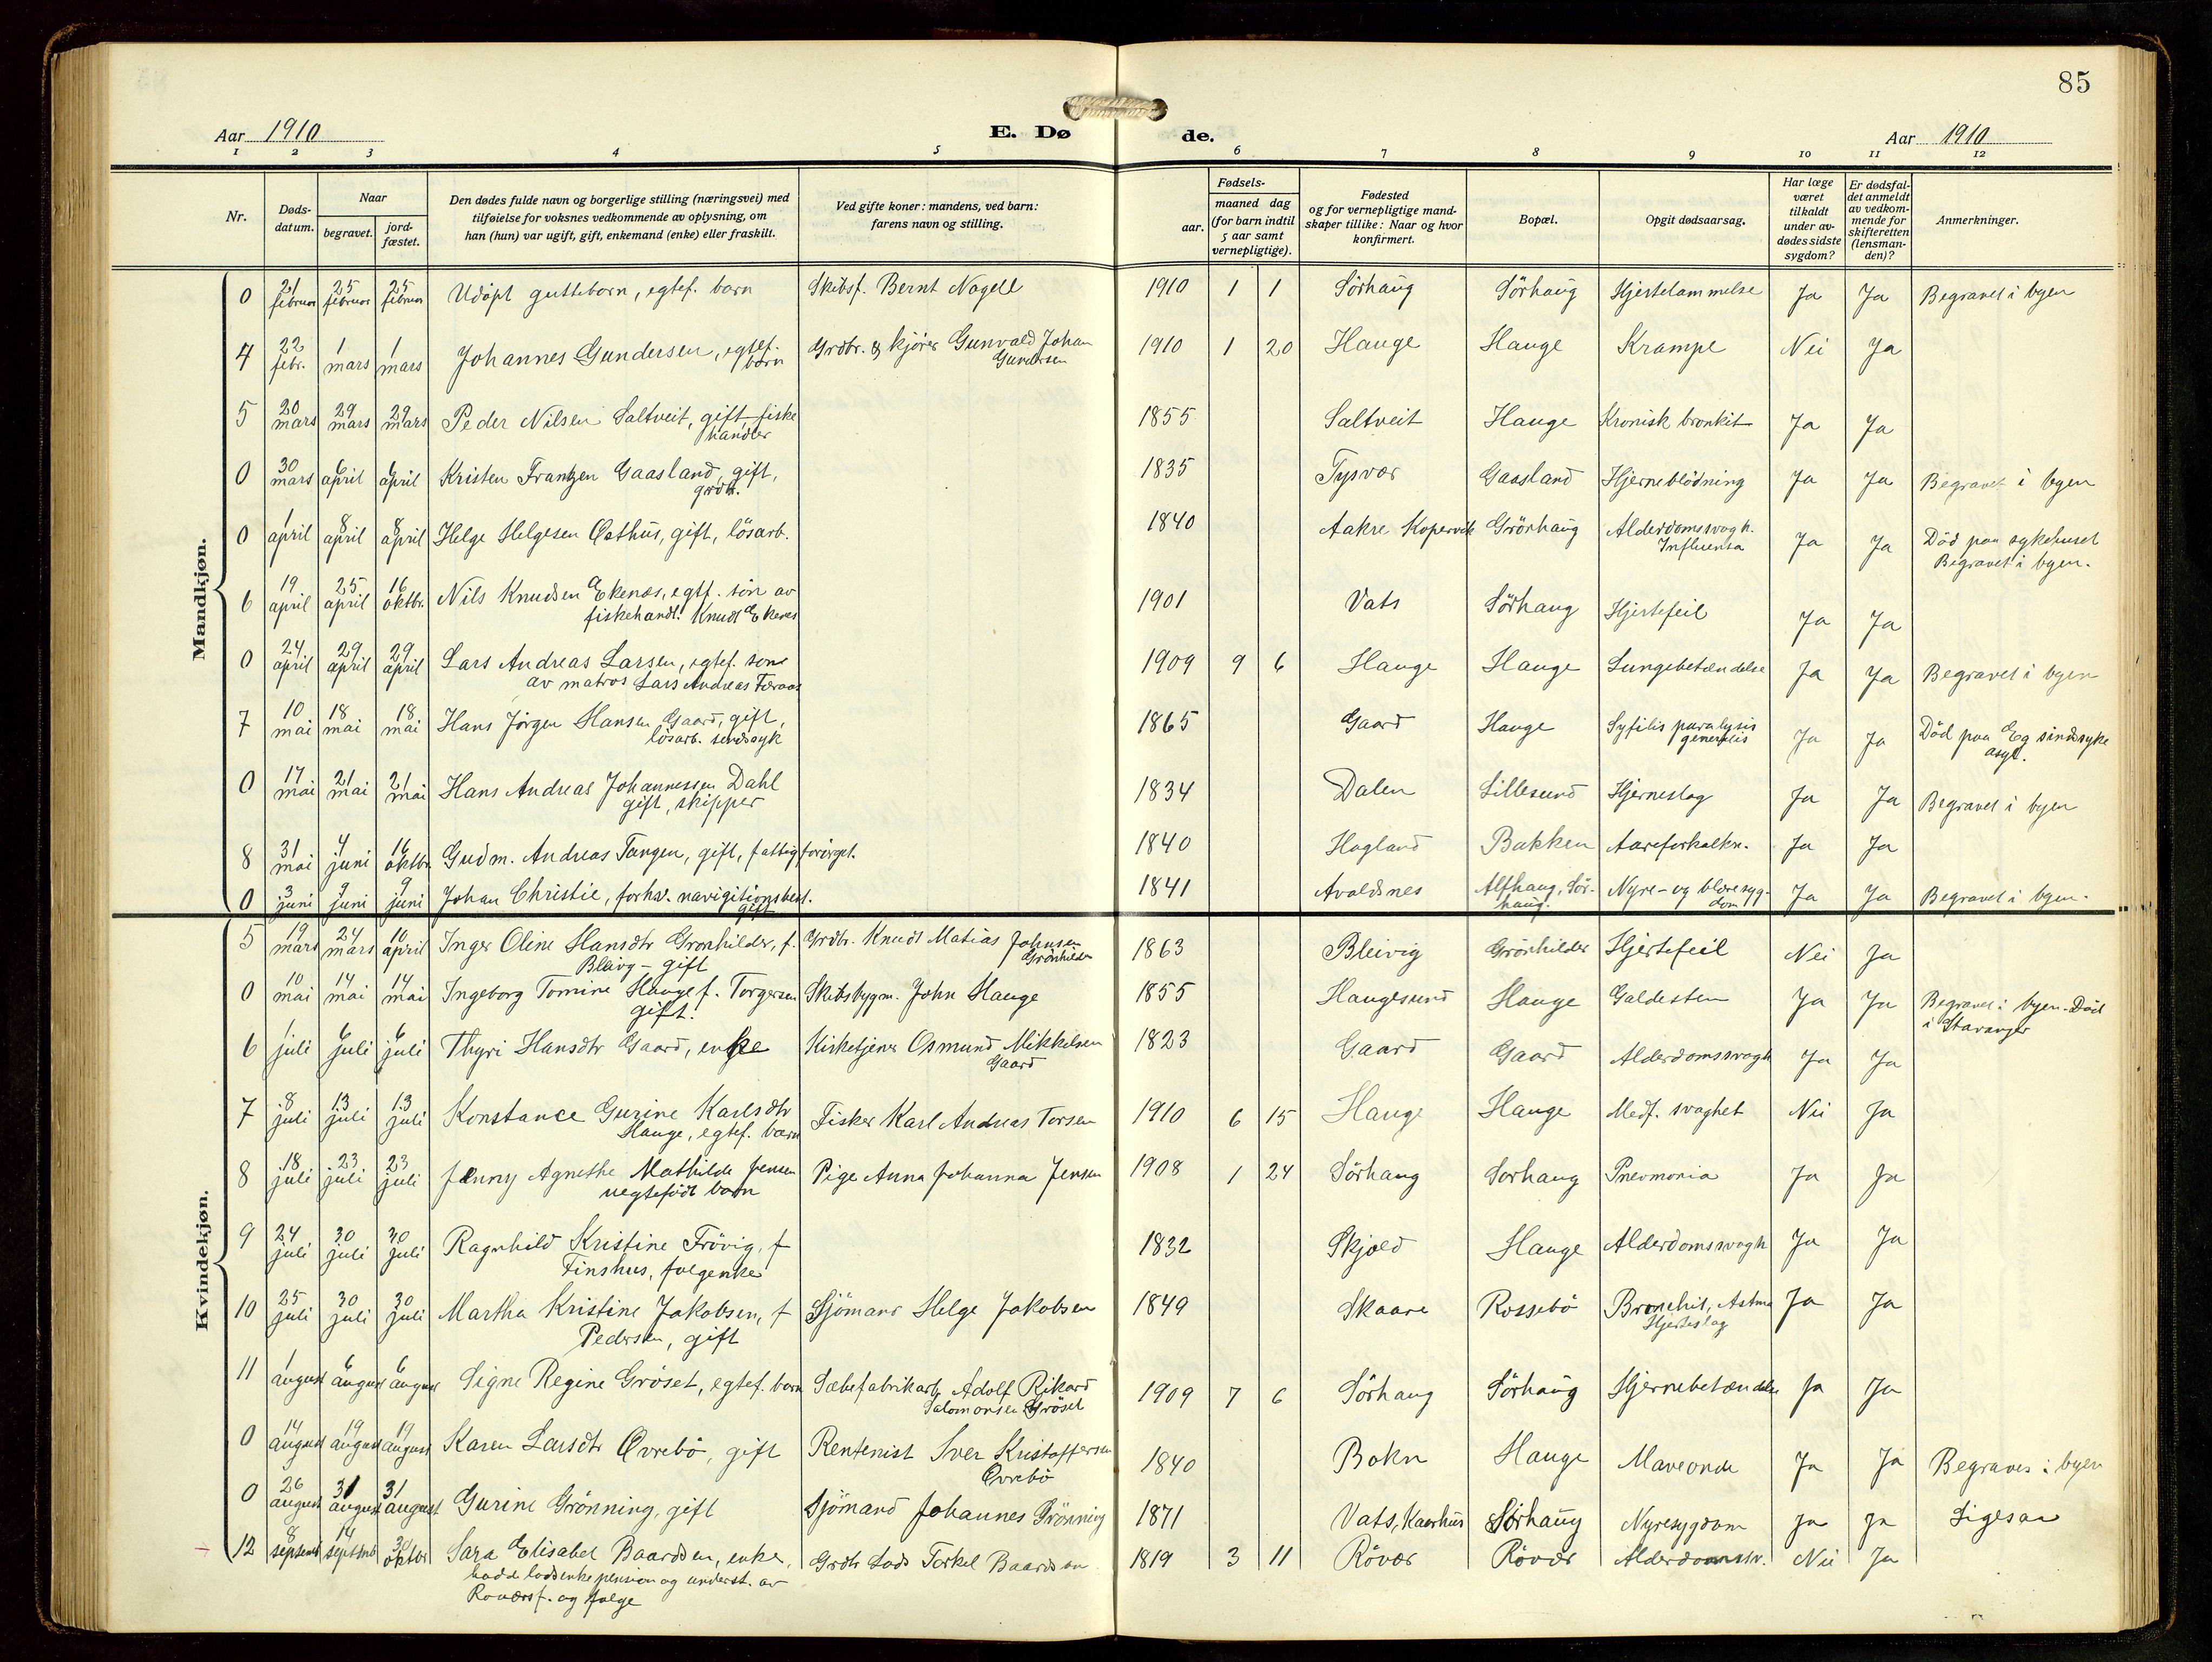 85
Aar 1910
E. Dø de.
Aar 1910
1 2 3 4 5 6 7 8 9 10 11 12
Nr.
Dødsdatum.
Naar
begravet.
jordfæstet.
Den dødes fulde navn og borgerlige stilling (næringsvei) med
tilføielse for voksnes vedkommende av oplysning, om
han (hun) var ugift, gift, enkemand (enke) eller fraskilt.
Ved gifte koner: mandens, ved barn:
farens navn og stilling.
Fødsels-
aar.
maaned dag
(for barn indtil
5 aar samt
vernepligtige).
Fødested
og for vernepligtige mand-
skaper tillike: Naar og hvor
konfirmert.
Bopæl.
Opgit dødsaarsag.
Har læge
været
tilkaldt
under av-
dødes sidste
sygdom?
Er dødsfal-
det anmeldt
av vedkom-
mende for
skifteretten
(lensman-
den)?
Anmerkninger.
Mandkjøn.
0 21 februar 25 februar 25 februar Udöpt guttebarn, egtef. barn Skibsf. Bernt Nagell 1910 1 1 Sörhaug Sörhaug Hjertelammelse Ja Ja Begravet i byen
4 22 febr. 1 mars 1 mars Johannes Gundersen, egtef. Grdbr. & kjörer Gunvald Johan 1910 1 20 Hauge Hauge Krampe Nei Ja
barn Gundersen
5 20 mars 29 mars 29 mars Peder Nilsen Saltveit, gift, fiske 1855 Saltveit Hauge Kronisk bronkit Ja Ja
handler
0 30 mars 6 april 6 april Kristen Frantzen Gaasland, gift, 1835 Tysvær Gaasland Hjerneblödning Ja Ja Begravet i byen
grdbr.
0 1 april 8 april 8 april Helge Helgesen Østhus, gift, lösarb. 1840 Aakre Kopervik Grörhaug Alderdomssvagh. Ja Ja Död paa sykehuset
Influensa Begravet i byen.
6 19 april 25 april 16 oktbr. Nils Knudsen Ekenæs, egtf. sön av 1901 Vats Sörhaug Hjertefeil Ja Ja
fiskehandl. Knud Ekenes
0 24 april 29 april 29 april Lars Andreas Larsen, egtef. sön 1909 9 6 Hauge Hauge Lungebetændelse Ja Ja Begravet i byen
av matros Lars Andreas Færaas
7 10 mai 18 mai 18 mai Hans Jörgen Hansen Gaard, gift, 1865 Gaard Hauge Syfilis paralysis Ja Ja Död paa Eg sindssyke
lösarb. sindssyk generalis asyl.
0 17 mai 21 mai 21 mai Hans Andreas Johannessen Dahl 1834 Dalen Lillesund Hjerneslag Ja Ja Begravet i byen
gift, skipper
8 31 mai 4 juni 16 oktbr. Gudm. Andreas Tangen, gift, fattigforsörget. 1840 Hagland Bakken Aareforkalkn. Ja Ja
0 3 juni 9 juni 9 juni Johan Christie, forhv. navigitionsbest. 1841 Avaldsnes Alfhaug, Sör- Nyre- og blæresyg- Ja Ja Begravet i byen.
gift haug. dom
Kvindekjøn.
5 19 mars 24 mars 10 april Inger Oline Hansdtr Grönhilder, f. Grdbr. Knud Matias Johnsen 1863 Bleivig Grönhilder Hjertefeil Nei Ja
Bleivig - gift Grönhilder
0 10 mai 14 mai 14 mai Ingeborg Tomine Hauge f. Torgersen Skibsbygm. John Hauge 1855 Haugesund Hauge Galdesten Ja Ja Begravet i byen. Död
gift. i Stavanger
6 1 juli 6 juli 6 juli Thyri Hansdtr Gaard, enke Kirketjener Osmund Mikkelsen 1823 Gaard Gaard Alderdomssvagh Ja Ja
Gaard
7 8 juli 13 juli 13 juli Konstance Gurine Karlsdtr Fisker Karl Andreas Torsen 1910 6 15 Hauge Hauge Medf. svaghet Nei Ja
Hauge, egtef. barn
8 18 juli 23 juli 23 juli Jenny Agnethe Mathilde Jensen Pige Anna Johanna Jensen 1908 1 24 Sörhaug Sorhaug Pneomonia Ja Ja
uegtefödt barn
9 24 juli 30 juli 30 juli Ragnhild Kristine Frövig, f 1832 Skjold Hauge Alderdomssvagh Ja Ja
Finshus, folgenke
10 25 juli 30 juli 30 juli Martha Kristine Jakobsen, f Sjömand Helge Jakobsen 1849 Skaare Rossebö Bronchit, Astma Ja Ja
Pedersen, gift Hjerteslag
11 1 august 6 august 6 august Signe Regine Gröset, egtef. barn Sæbefabrikarb. Adolf Rikard 1909 7 6 Sörhaug Sörhaug Hjernebetændelse Ja Ja
Salomonsen Gröset
0 14 august 19 august 19 august Karen Larsdtr Øvrebö, gift Rentenist Iver Kristoffersen 1840 Bokn Hauge Maveonde Ja Ja Begraves i byen
Øvrebö
0 26 august 31 august 31 august Gurine Grönning, gift Sjömand Johannes Grönning 1871 Vats, Kaarhus Sörhaug Nyresygdom Ja Ja Ligesaa
12 8 septemb 14 septemb 30 oktbr Sara Elisabet Baardsen, enke, Grdbr Lods Torkel Baardsen 1819 3 11 Rövær Rövær Alderdomssv. Nei Ja
hadde lodsenkepension og underst. av
Roværsf. og folge